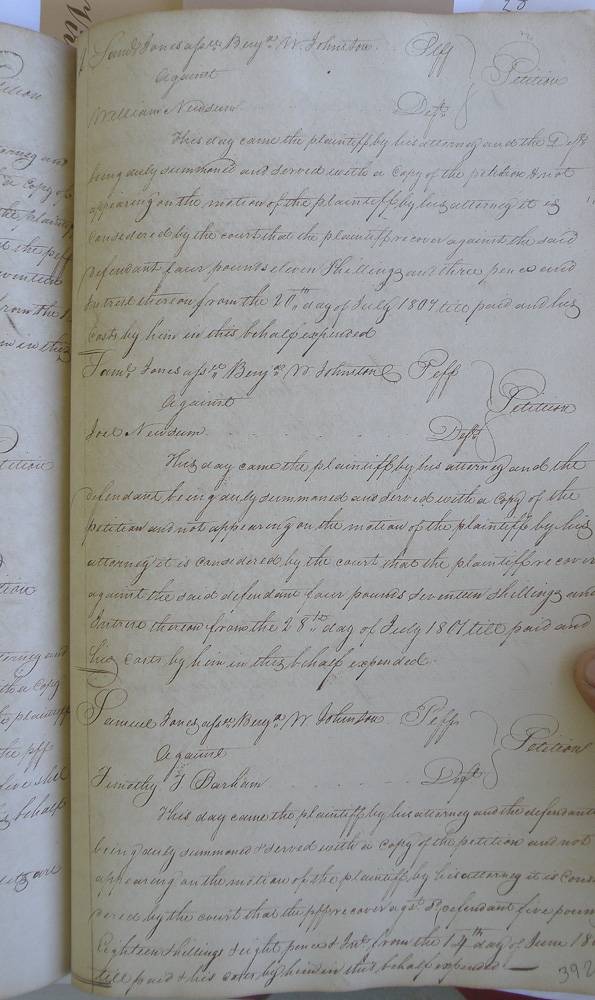 Saml. Jones asse. Benja. W. Johnston Plff
Against Petition
William Newsum Deft.
This day came the plaintiff by his attorney and the Deft.
being duly summoned and served with a copy of the petition & not
appearing on the motion of the plaintiff by his attorney it is
considered by the court that the plaintiff recover against the said
defendant four pounds eleven Shillings and three pence and
Intrest thereon from the 20th. day of July 1807 till paid and his
Costs by him in this behalf expended
Saml. Jones asse. Benja. W Johnston Plff
Against Petition
Joel Newsum Deft.
This day came the plaintiff by his attorney and the
defendant being duly summoned and served with a Copy of the
petition and not appearing on the motion of the plaintiff by his
attorney it is considered by the court that the plaintiff recover
against the said defendant four pounds seventeen shillings and
Intrest thereon from the 28th. day of July 1807 till paid and
his Costs by him in this behalf expended.
Samuel Jones asse. Benja. W Johnston Plff
Against Petition
Timothy T Barham Deft.
This day came the plaintiff by his attorney and the defendant
being duly summoned & served with a copy of the petition and not
appearing on the motion of the plaintiff by his attorney it is Consi
dered by the court that the plff recover agst. Sd. defendant five pounds
Eighteen shillings & eight pence & Int. from the 14th day of June
till paid & his costs by him in this behalf expended.
392